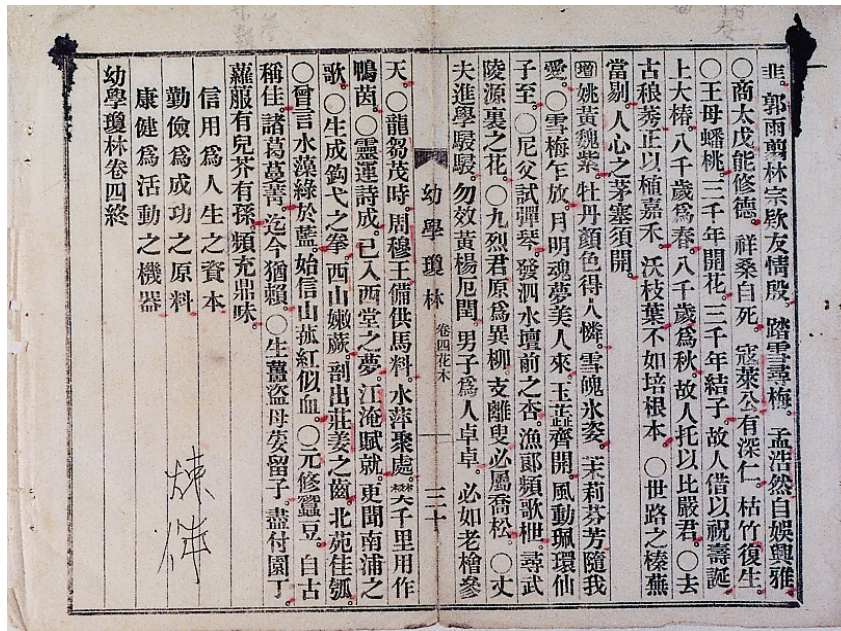 韭。郭雨剪林宗欵友情殷。踏雪尋梅。孟浩然自娛興雅
〇商太戊能修德。祥桑自死。寇萊公有深仁。枯竹復生。
〇王母蟠桃。三千年開花。三千年結子。故人借以祝壽誕。
上大椿。八千歲爲春。八千歲爲秋。故人托以比嚴君。〇去
古稂莠正以植嘉禾。沃枝葉不如培根本。〇世路之榛蕪
當剔。人心之茅塞須開。
增姚黃魏紫。牡丹顏色得人憐。雪魄氷姿。茉莉芬芳隨我
愛。〇雪梅乍放。月明魂夢美人來。玉蕋齊開。風動珮環仙
子至。〇尼父試彈琴。發泗水壇前之杏。漁郞頻歌枻。尋武
陵源裏之花。〇九烈君原爲異柳。支離叟必屬喬松。〇丈
夫進學駸駸。勿效黃楊厄閏。男子爲人卓卓。必如老檜參
幼學瓊林 卷四花木 三十
天。〇龍芻茂時。周穆王備供馬料。水萍聚處。樊千里用作
鴨茵。〇靈運詩成。已入西堂之夢。江淹賦就。更聞南浦之
歌。〇生成鈎弋之拳。西山嫩蕨。剖出莊姜之齒。北苑佳瓠
〇曾言水藻綠於藍。始信山菰紅似血。〇元修蠶豆。自古
稱佳。諸葛蔓菁。迄今猶賴。〇生薑盜母姜留子。盡付園丁
蘿服有兒芥有孫。頻充鼎味。
信用爲人生之資本
勤儉爲成功之原料
康健爲活動之機器
幼學瓊林卷四終